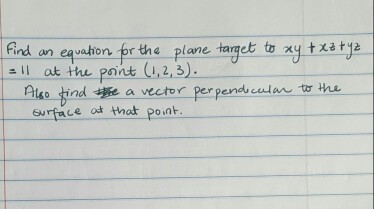 Find an equation for the plane target to xy + xz + yz
= 11 at the point (1,2,3).
Also find a vector perpendicular to the
surface at that point.